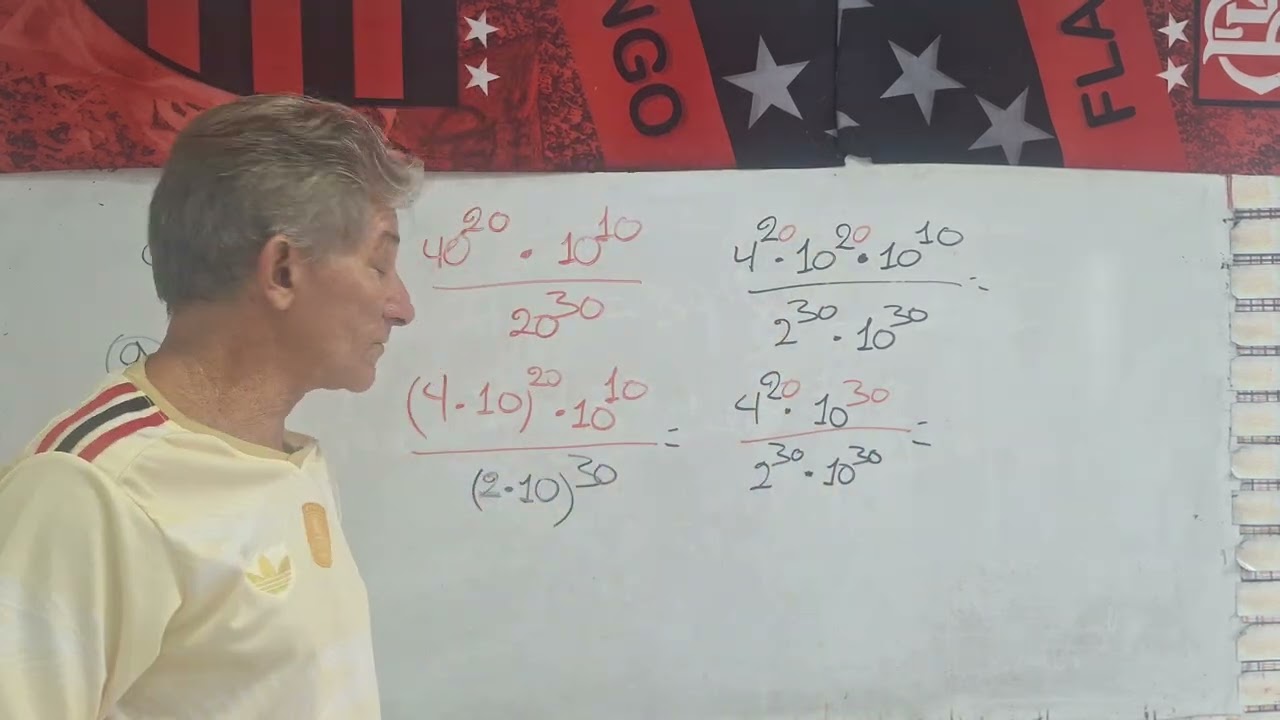 NGO
FLA
40^20 · 10^10
20^30
(4 · 10)^20 · 10^10 =
(2 · 10)^30
4^20 · 10^20 · 10^10 =
2^30 · 10^30
4^20 · 10^30 =
2^30 · 10^30